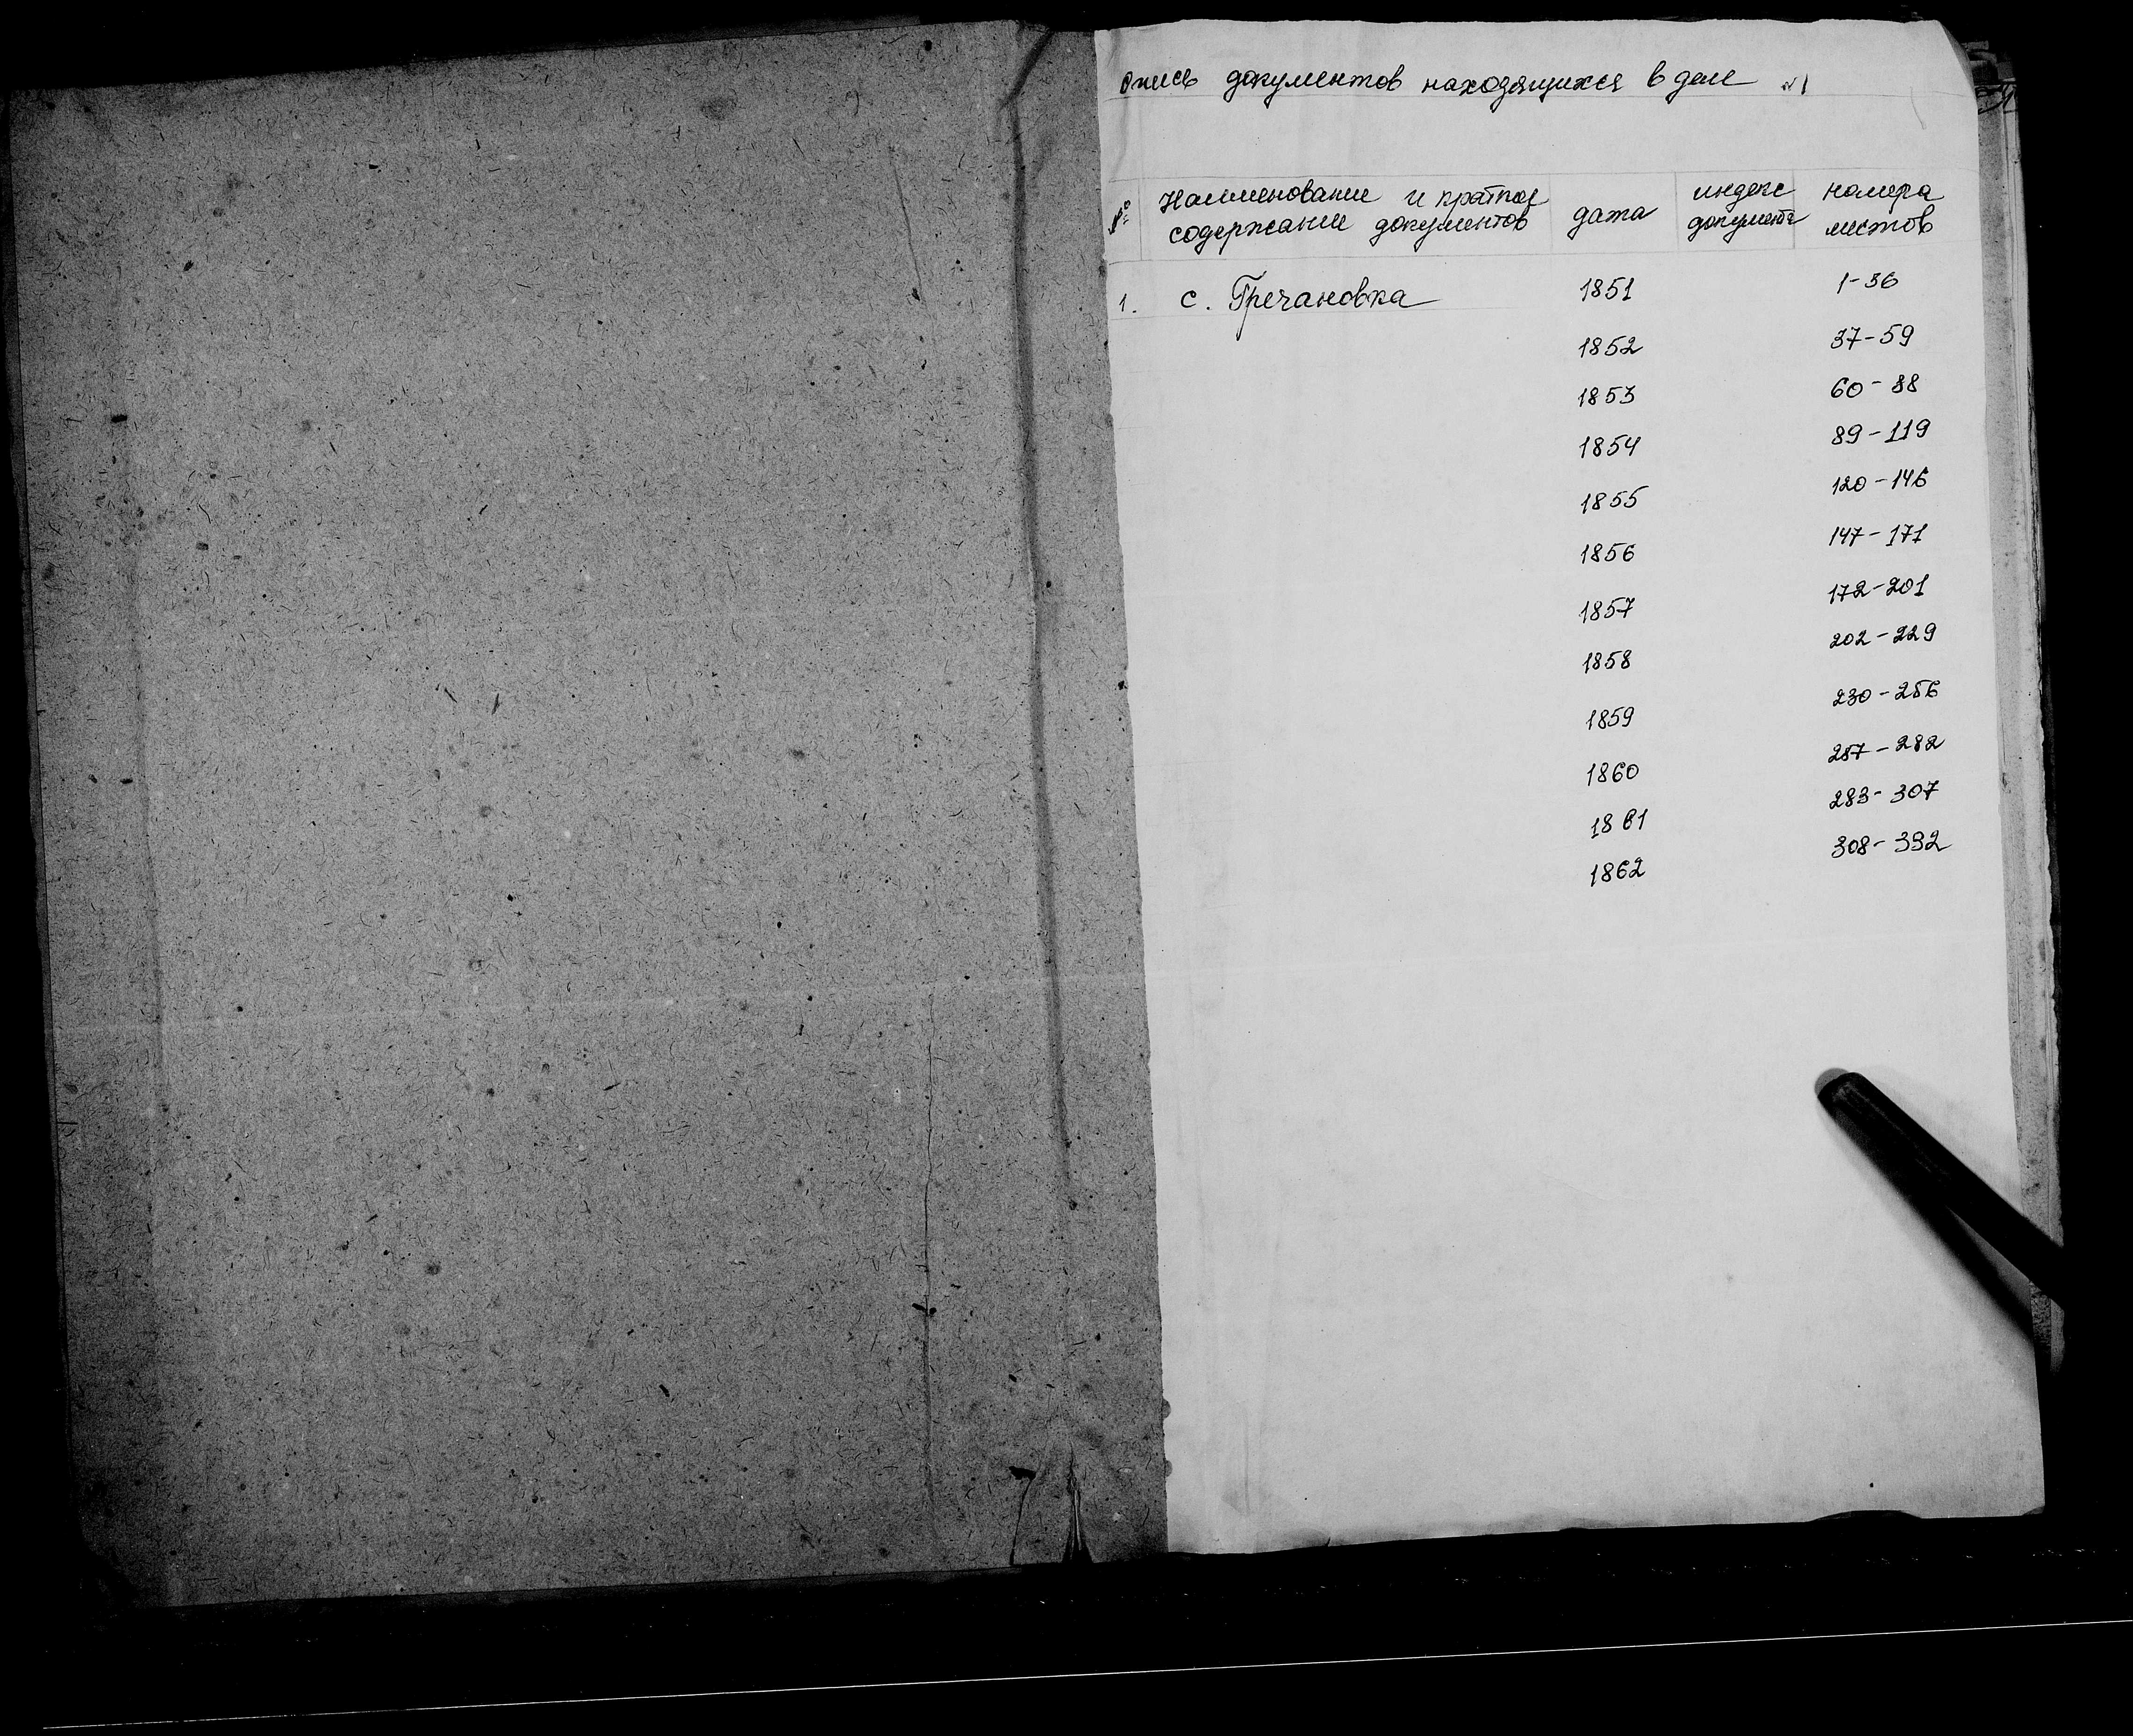 Опись документов находящихся в деле №1
№ Наименование и краткое дата индекс номера
содержание документов документа листов
1. с. Гречановка 1851 1-36
1852 37-59
1853 60-88
1854 89-119
1855 120-146
1856 147-171
1857 172-201
1858 202-229
1859 230-256
1860 257-282
1861 283-307
1862 308-332